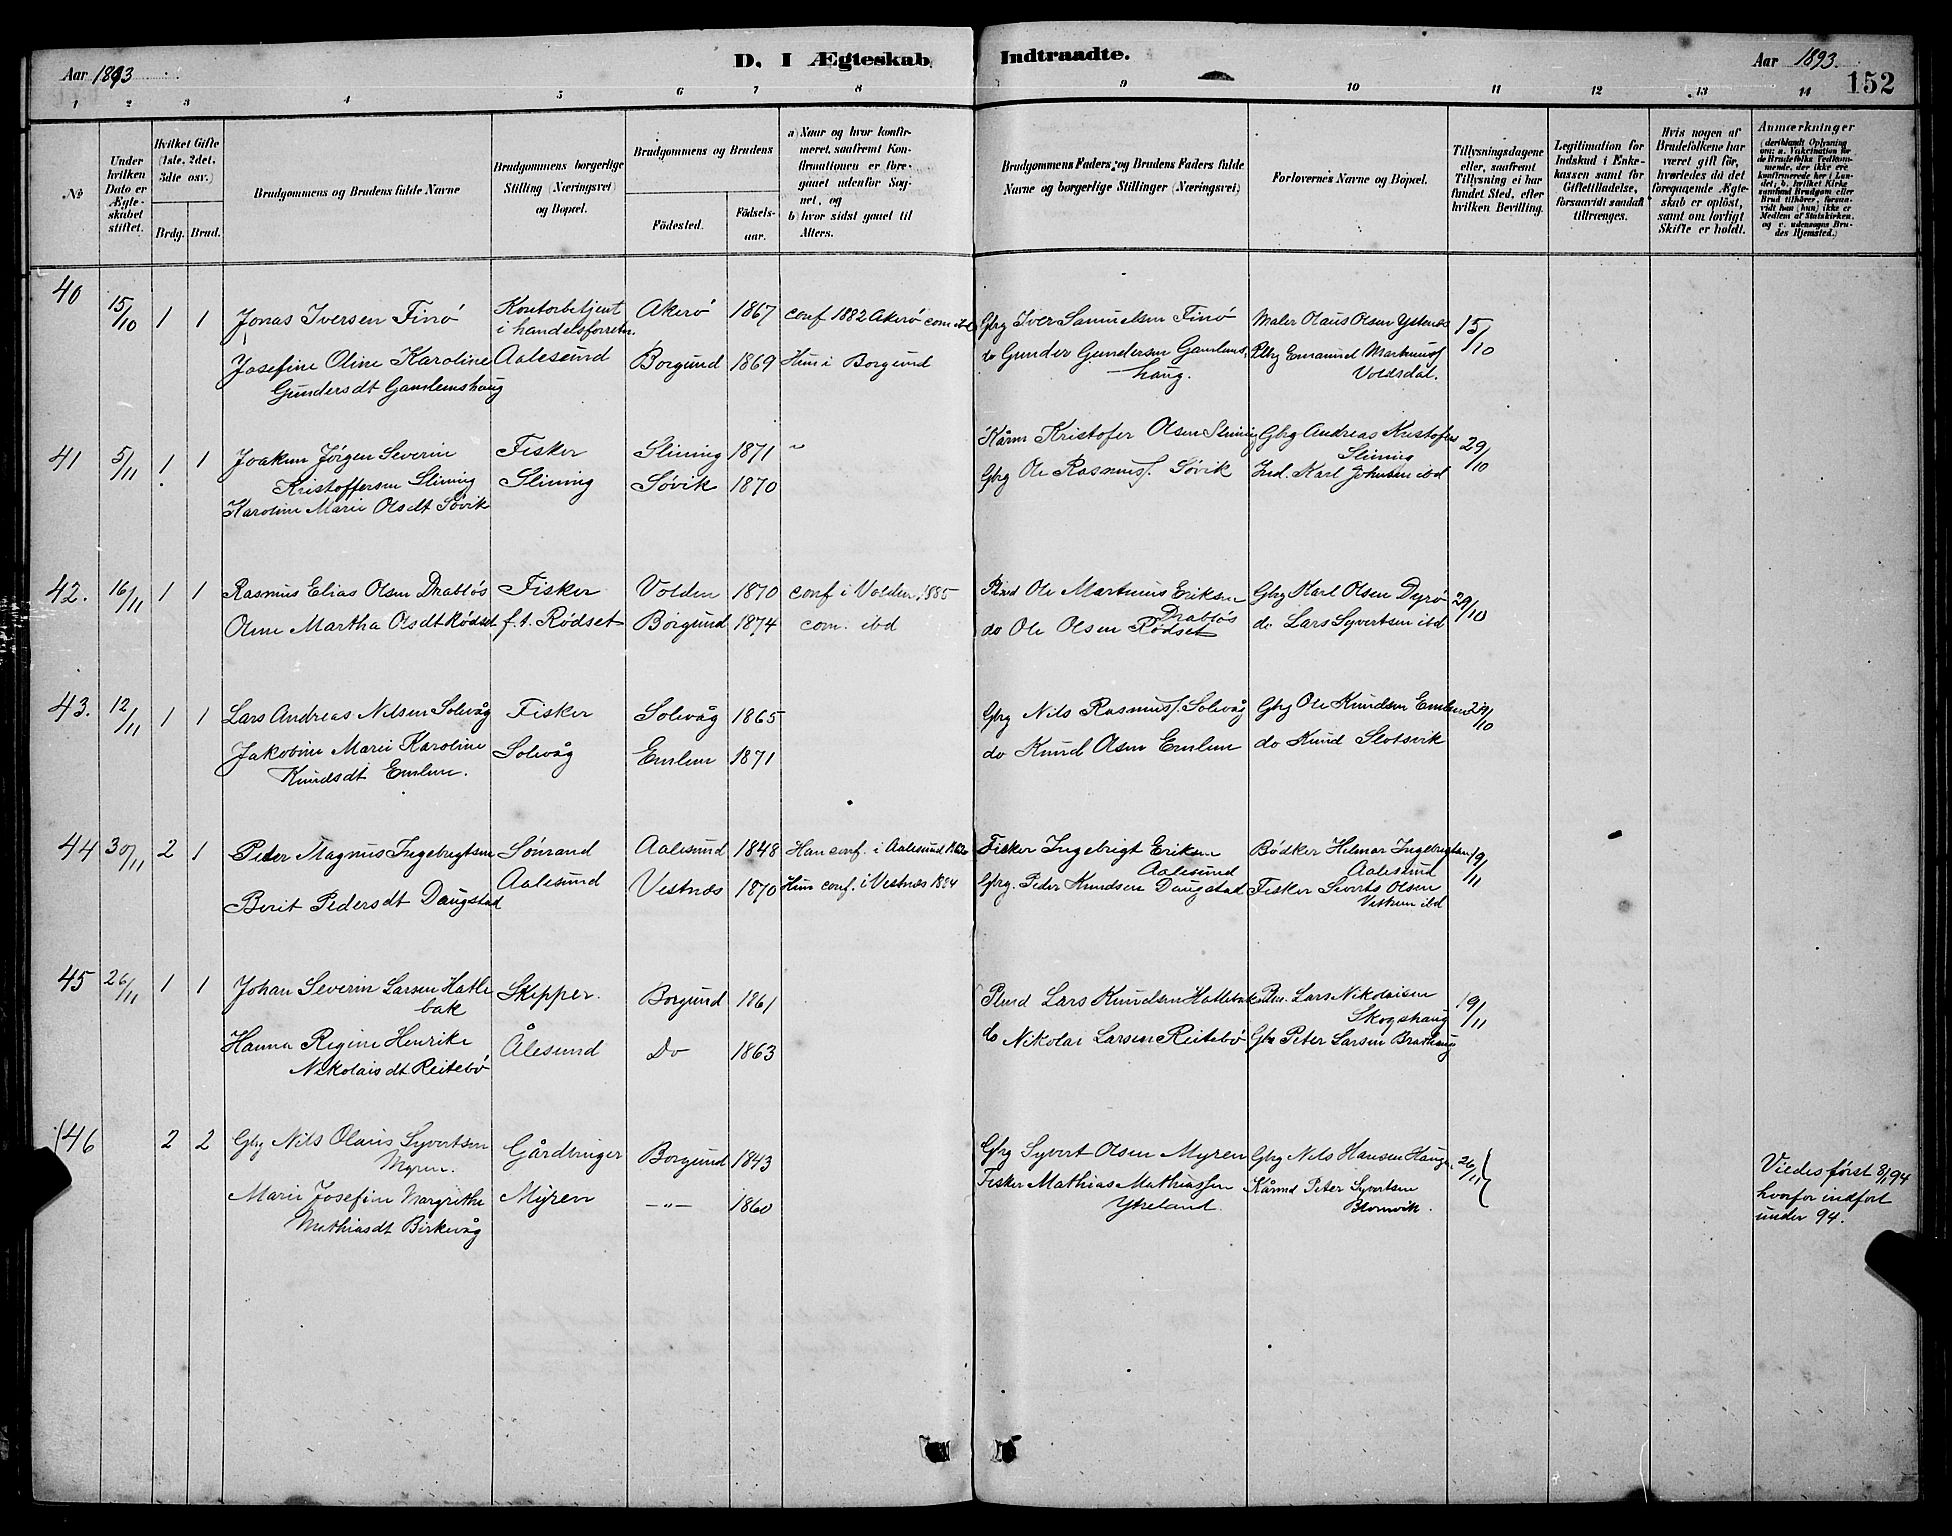 Aar 1893
D. I Ægteskab Indtraadte.
Aar 1893.
152
1 2 3 4 5 6 7 8 9 10 11 12 13 14
No
Under hvilken Dato er Ægteskabet stiftet.
Hvilket Gifte (1ste, 2det, 3die osv.)
Brdg. Brud.
Brudgommens og Brudens fulde Navne
Brudgommens borgerlige Stilling (Næringsvei) og Bopæl.
Brudgommens og Brudens
Födested.
Födselsaar.
a) Naar og hvor konfirmeret, saafremt Konfirmationen er foregaaet udenfor Sognet, og
b) hvor sidst gaaet til Alters.
Brudgommens Faders og Brudens Faders fulde Navne og borgerlige Stillinger (Næringsvei)
Forlovernes Navne og Bopæl.
Tillysningsdagene eller, saafremt Tillysning ei har fundet Sted, efter hvilken Bevilling.
Legitimation for Indskud i Enkekassen samt for Giftetilladelse, forsaavidt saadant tiltrænges.
Hvis nogen af Brudefolkene har været gift för, hvorledes da det foregaaende Ægteskab er oplöst, samt om lovligt Skifte er holdt.
Anmærkninger
40 15/10 1 1 Jonas Iversen Finö
Kontorbetjent i handelsforretn.
Akerö 1867 conf 1882 Akerö com ibd
Gbrg Iver Samuelsen Finö
Maler Olaus Olsen Ystenes 15/10
Josefine Oline Karoline
Gundersdt Gamlemshaug
Aalesund
Borgund 1869 Hun i Borgund
do Gunder Gundersen Gamlemshaug.
Emanuel Voldsdal.
41 5/11 1 1 Joakim Jörgen Severin
Kristoffersen Slining
Fisker
Slining 1871 "
Kårm Kristofer Olsen Slining
Gbrg Andreas Kristofers Slining 29/10
Karoline Marie Olsdt Sövik
Slining
Sövik 1870
Gbrg Ole Rasmuss. Sövik
Ind. Karl Johnsen ibd
42. 16/11 1 1 Rasmus Elias Olsen Drabløs
Fisker
Volden 1870 conf i Volden 1885
Plnd Ole Martinus Eriksen Drabløs
Gbrg Karl Olsen Dyrö 29/10
Oline Martha Olsdt Rödset
f. t. Rödset
Borgund 1874 com. ibd
do Ole Olsen Rödset
do Lars Syvertsen ibd
43. 12/11 1 1 Lars Andreas Nilsen Solevåg
Fisker
Solevåg 1865
Gbrg Nils Rasmuss. Solevåg
Gbrg Ole Knudsen Emlem 29/10
Jakobine Marie Karoline
Knudsdt Emlem.
Solevåg
Emlem 1871
do Knud Olsen Emlem
do Knud Slotsvik
44 30/11 2 1 Peder Magnus Ingebregtsen
Aalesund 1848 Han conf. i Aalesund
Fisker Ingebrigt Eriksen Aalesund
Bödker Helmar Ingebrigtsen Aalesund 19/11
Berit Pedersdt Daugstad
Aalesund
Vestnæs 1870 Hun conf. i Vestnæs 1884
Gbrg. Peder Knudsen Daugstad
Fisker Sverts Olsen ibd
45 26/11 1 1 Johan Severin Larsen Hatlebak
Skipper.
Borgund 1861
Plnd Lars Knudsen Hatlebak
Lars Nikolaisen Skogshaug 19/11
Hanna Regine Henrike
Nikolaisdt. Reitebö
Ålesund
Do 1863
do Nikolai Larsen Reitebö
Gbr Peter Larsen Brathaug
(46 2 2 Gbrg Nils Olaus Syvertsen Myren.
Gårdbruger
Borgund 1843
Gbrg Syvert Olsen Myren
Gbrg Nils Hansen Hauge. 26/11
Viedes först 8/1 94
hvorfor indfört
under 94.
Marie Josefine Margrithe
Mathiasdt Birkevåg
Myren
—"— 1860
Fisker Mathias Mathiassen
Kårmd Peter Syvertsen
Blomvik.